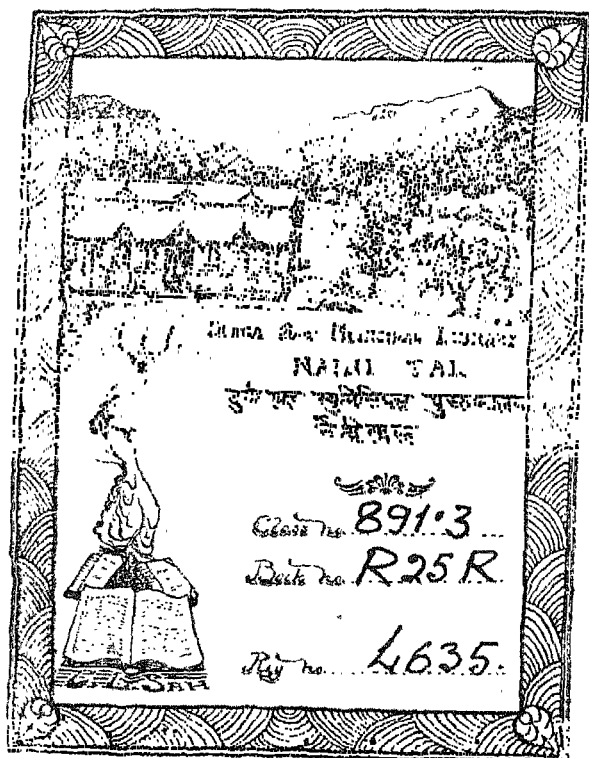 DURGA SAH MUNICIPAL LIBRARY
NAINI TAL
दुर्गा साह म्युनिसिपल पुस्तकालय
नैनीताल
Class no. 891.3
Book no. R25R
Reg no. 4635.
C.L. SAH